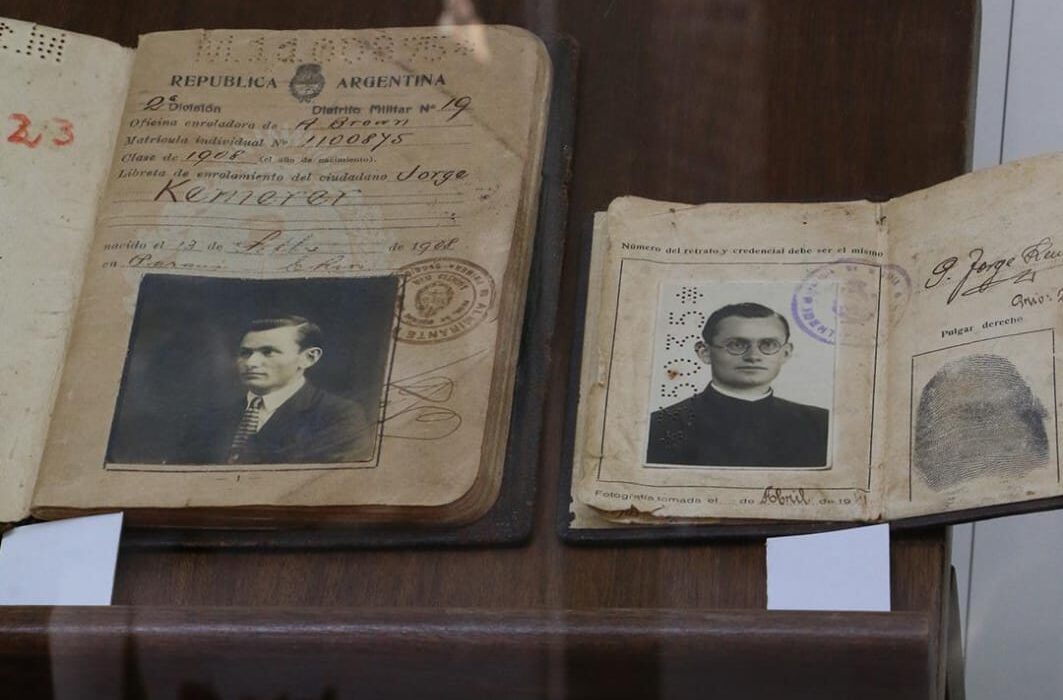 23
REPUBLICA ARGENTINA
2ª División Distrito Militar Nº 19
Oficina enroladora de A Brown
Matrícula individual Nº 1100875
Clase de 1908 (el año de nacimiento).
Libreta de enrolamiento del ciudadano Jorge
Kemerer
nacido el 13 de de 1908
en
ALMIRANTE
1
Número del retrato y credencial debe ser el mismo
P. Jorge
Pulgar derecho
Fotografía tomada el de Abril de 19